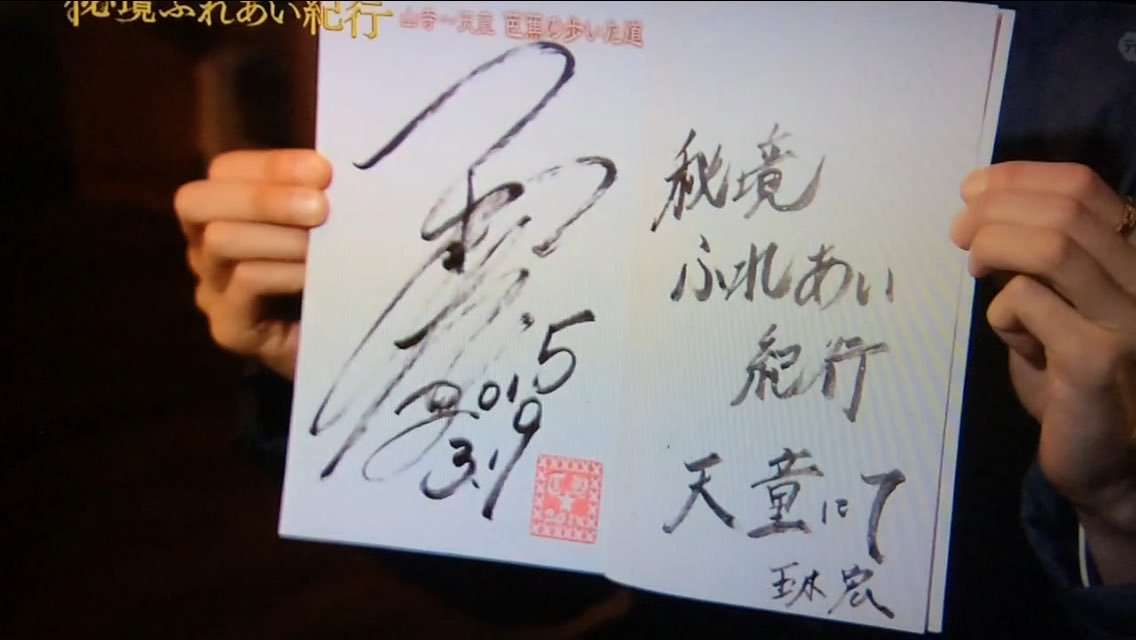 秘境ふれあい紀行 山寺〜天童 芭蕉の歩いた道
2015
3.19
秘境
ふれあい
紀行
天童にて
玉木 宏